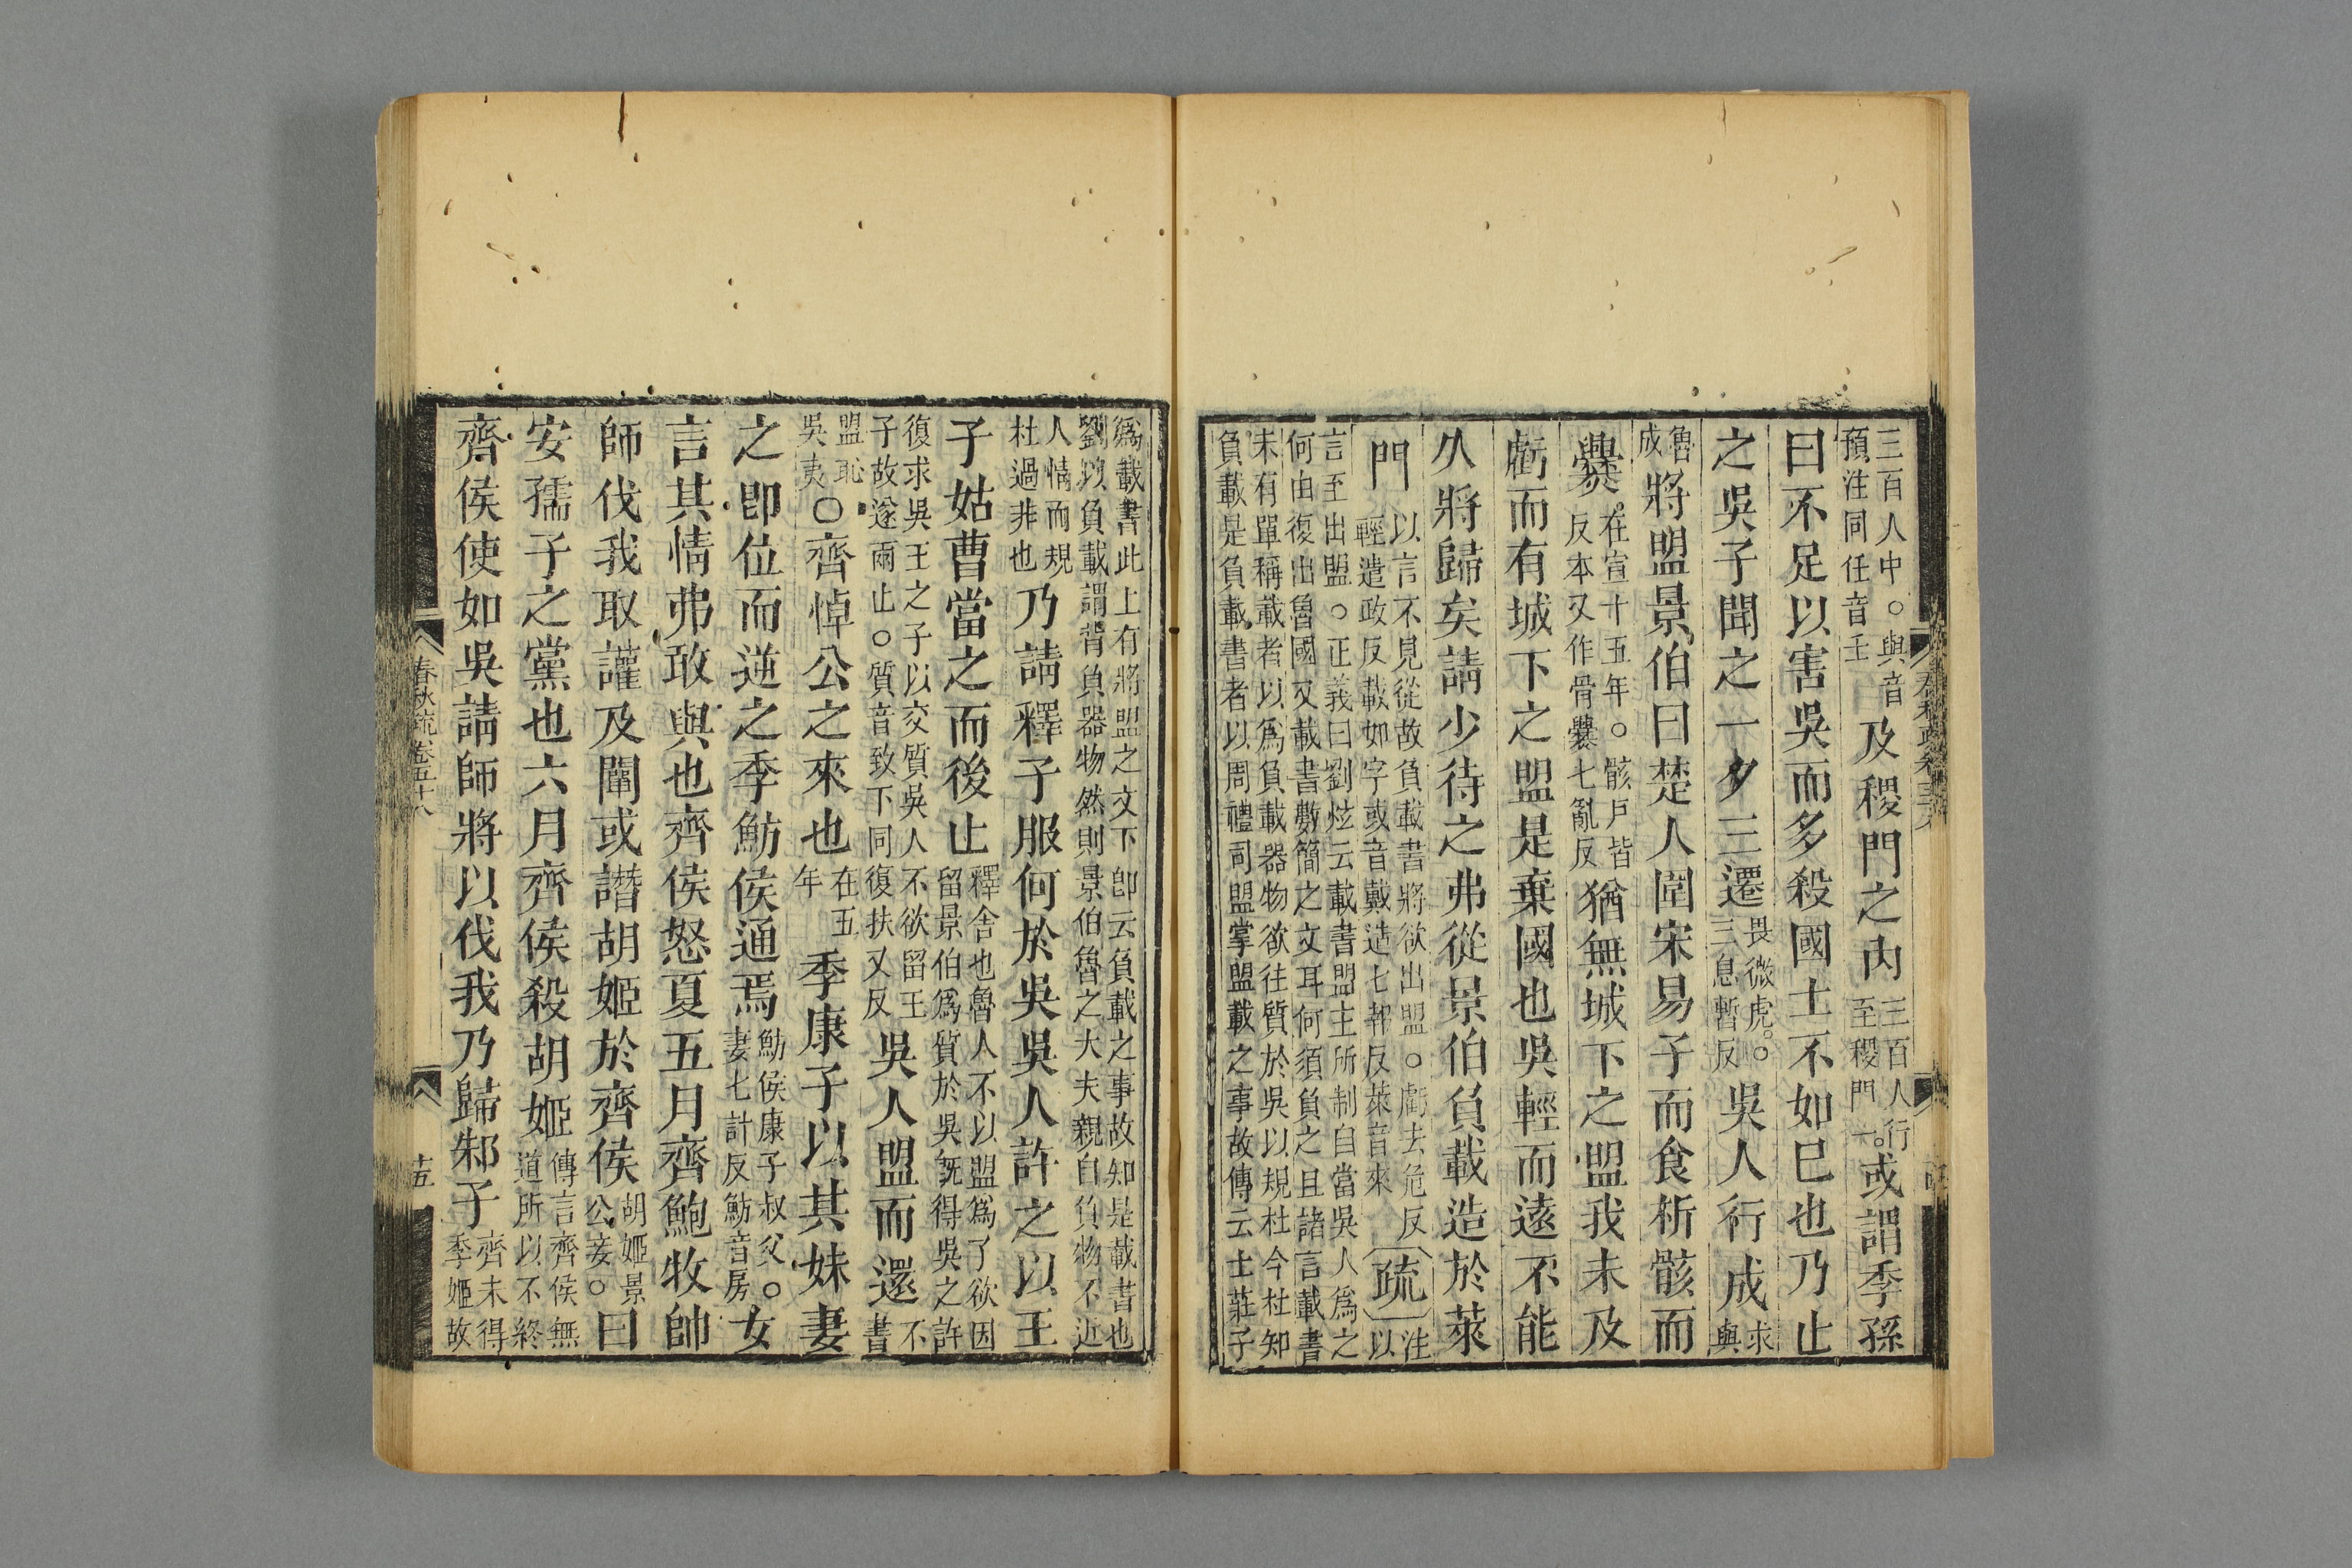 三百人中○與音
預注同任音壬
及稷門之內
三百人行
至稷門
或謂季孫
曰不足以害吳而多殺國士不如已也乃止
之吳子聞之一夕三遷
畏微虎○
三息暫反
吳人行成
求與
魯成
將盟景伯曰楚人圍宋易子而食析骸而
爨
在宣十五年○骸戶皆
反本又作骨爨七亂反
猶無城下之盟我未及
虧而有城下之盟是棄國也吳輕而遠不能
久將歸矣請少待之弗從景伯負載造於萊
門
以言不見從故負載書將欲出盟○虧去危反
輕遣政反載如字或音戴造七報反萊音來
疏
注以
言至出盟○正義曰劉炫云載書盟主所制自當吳人為之
何由復出魯國又載書數簡之文耳何須負之且諸言載書
未有單稱載者以為負載器物欲往質於吳以規杜今杜知
負載是負載書者以周禮司盟掌盟載之事故傳云士莊子
為載書此上有將盟之文下卽云負載之事故知是載書也
劉以負載謂背負器物然則景伯魯之大夫親自負物不近
人情而規
杜過非也
乃請釋子服何於吳吳人許之以王
子姑曹當之而後止
釋舍也魯人不以盟為了欲因
留景伯為質於吳旣得吳之許
復求吳王之子以交質吳人不欲留王
子故遂兩止○質音致下同復扶又反
吳人盟而還
不書
盟恥
吳夷
○齊悼公之來也
在五年
季康子以其妹妻
之卽位而逆之季魴侯通焉
魴侯康子叔父○
妻七計反魴音房
女
言其情弗敢與也齊侯怒夏五月齊鮑牧帥
師伐我取讙及闡或譖胡姬於齊侯
胡姬景
公妾○
曰
安孺子之黨也六月齊侯殺胡姬
傳言齊侯無
道所以不終
齊侯使如吳請師將以伐我乃歸邾子
齊未得
季姬故
春秋疏卷五十八
十五